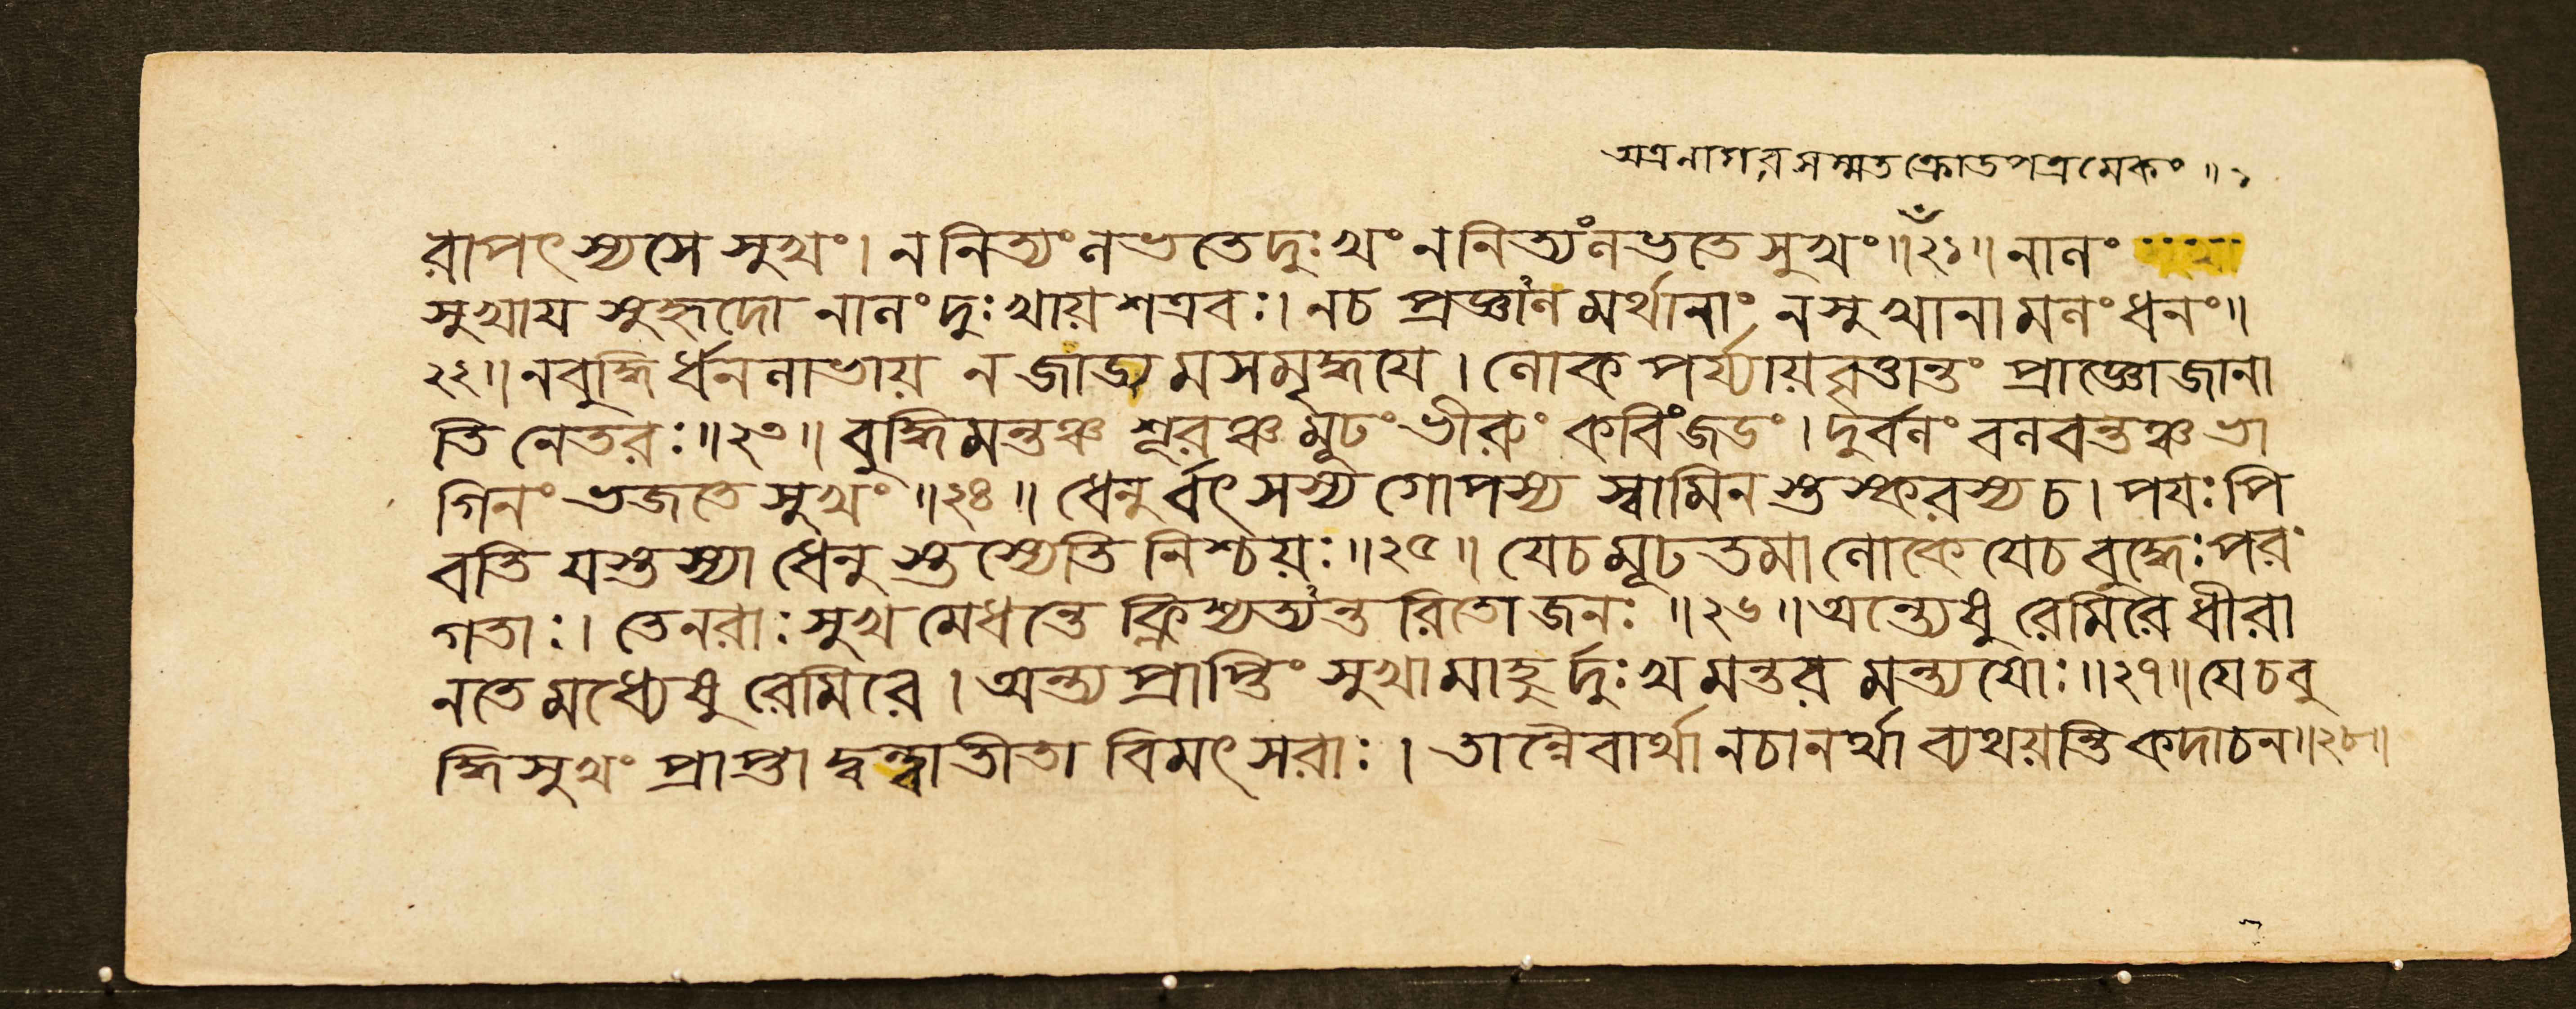 অত্রনাগরসম্মতক্রোডপত্রমেকং ॥
রাপৎস্যসে সুখং। ন নিত্যং লভতে দুঃখং ন নিত্যং লভতে সুখং॥২১॥ নালং
সুখায সুহৃদো নালং দুঃখায় শত্রবঃ। নচ প্রজ্ঞালমর্থানাং ন সুখানামলং ধনং॥
২২॥ ন বুদ্ধির্ধনলাভায় ন জাড্যমসমৃদ্ধযে। লোকপর্য্যায়বৃত্তান্তং প্রাজ্ঞো জানা
তি নেতরঃ॥২৩॥ বুদ্ধিমন্তঞ্চ শূরঞ্চ মূঢং ভীরুং কবিং জডং। দুর্বলং বলবন্তঞ্চ ভা
গিনং ভজতে সুখং॥২৪॥ ধেনুর্বৎসস্য গোপস্য স্বামিনস্তস্করস্য চ। পযঃ পি
বতি যস্তস্যা ধেনুস্তস্যেতি নিশ্চয়ঃ॥২৫॥ যেচ মূঢতমা লোকে যেচ বুদ্ধেঃ পরং
গতাঃ। তে নরাঃ সুখমেধন্তে ক্লিশ্যত্যন্তরিতো জনঃ॥২৬॥ অন্ত্যেষু রেমিরে ধীরা
ন তে মধ্যেষু রেমিরে। অন্ত্যপ্রাপ্তিং সুখামাহুর্দুঃখমন্তরমন্ত্যযোঃ॥২৭॥ যেচ বু
দ্ধিসুখং প্রাপ্তা দ্বন্দ্বাতীতা বিমৎসরাঃ। তান্নৈবার্থা নচানর্থা ব্যথয়ন্তি কদাচন॥২৮॥